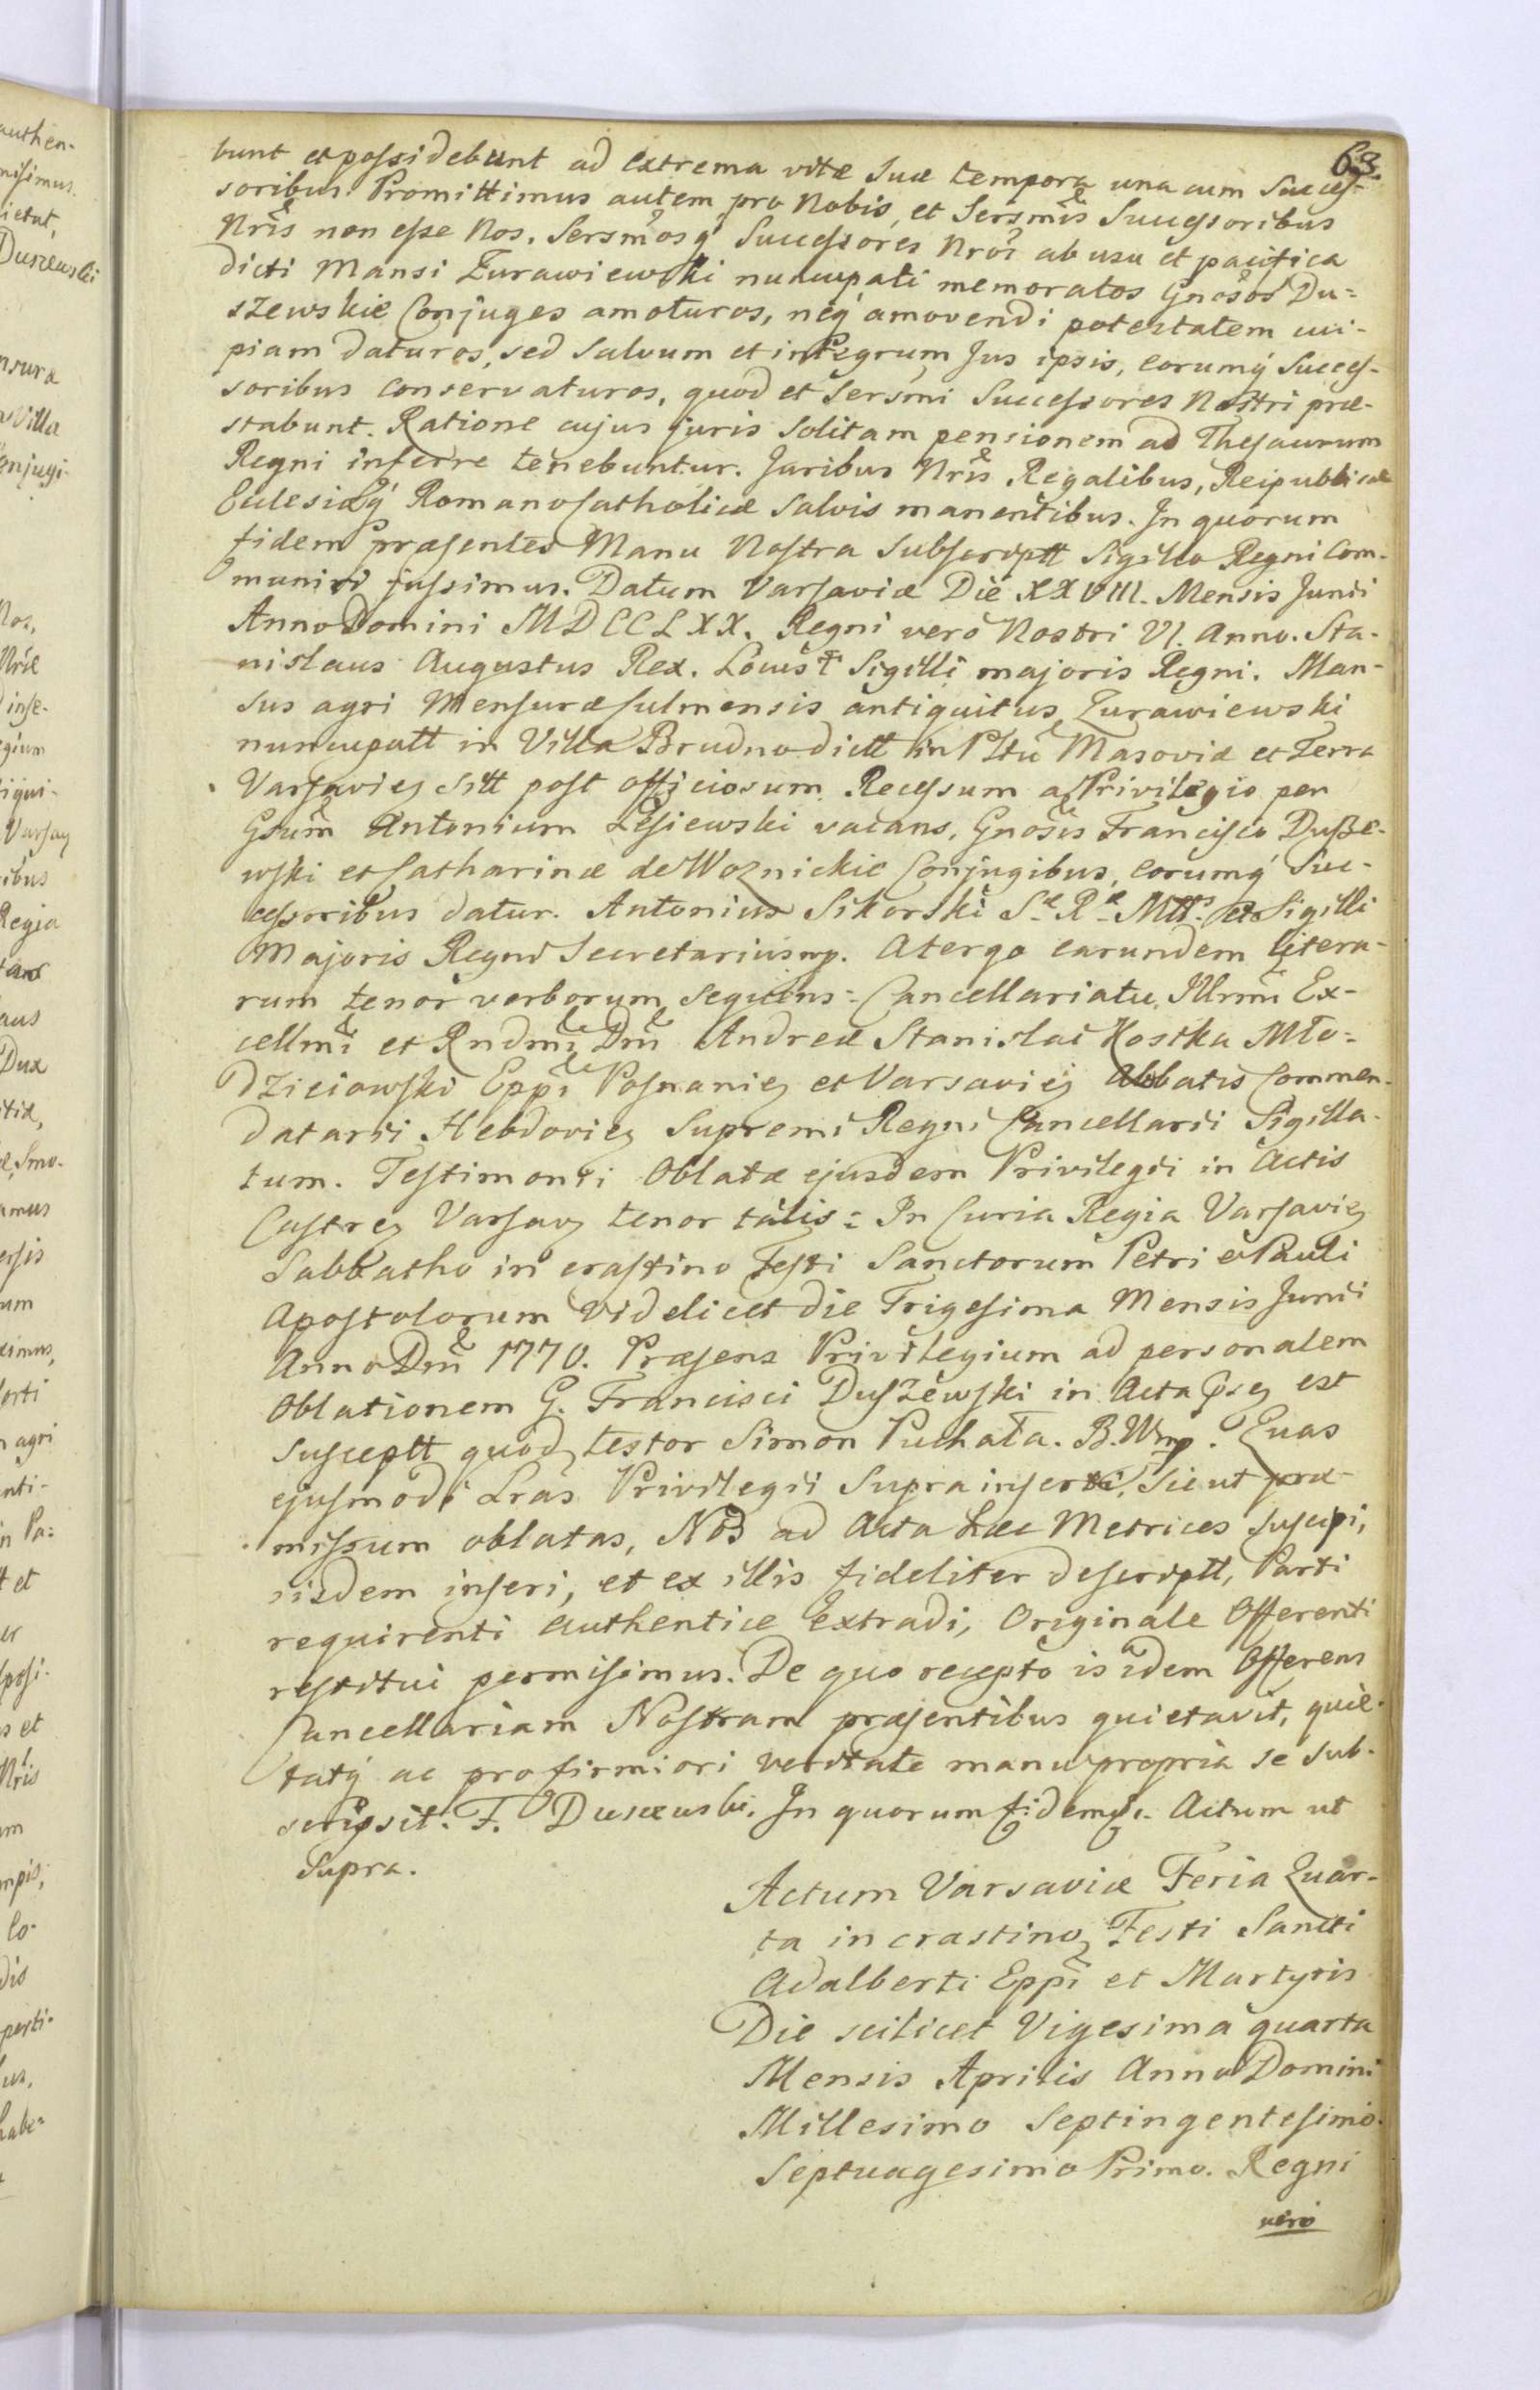 63.
bunt et possidebunt ad extrema vitæ suæ tempora una cum Succes-
soribus. Promittimus autem pro Nobis, et Sersmis Successoribus
Nris non esse Nos, Sersmosq́ Successores Nros ab usu et pacifica
dicti Mansi Zurawiewski nuncupati memoratos Gnosos Du=
szewskie Conjuges amoturos, neq́ amovendi potestatem cui-
piam daturos, sed salvum et integrum Jus ipsis, eorumq́ Succes-
soribus conservaturos, quod et Sersmi Successores Nostri præ-
stabunt. Ratione cujus juris solitam pensionem ad Thesaurum
Regni inferre tenebuntur. Juribus Nris Regalibus, Reipublicæ
Eclesiæq́ Romano Catholicæ salvis manentibus. In quorum
fidem præsentes Manu Nostra subscriptt Sigillo Regni com-
muniri jussimus. Datum Varsaviæ Die XXVIII. Mensis Junii
Anno Domini MDCCLXX. Regni vero Nostri VI. Anno. Sta-
nislaus Augustus Rex. Locus Sigilli majoris Regni. Man-
sus agri Mensuræ Culmensis antiquitus Zurawiewski
nuncupatt in Villa Brudno dictt in Pltu Masoviæ et Terra
Varsavieȝ sitt post officiosum Recessum a Privilegio per
Gsum Antonium Lesiewski vacans, Gnosis Francisco Dusze-
wski et Catharinæ de Woznickie Conjugibus, eorumq́ Suc-
cessoribus datur. Antonius Sikorski Sæ Ræ Mtts et Sigilli
Majoris Regni Secretarius mp. Atergo earundem litera-
rum tenor verborum sequens: Cancellariatu Illrmi Ex-
cellmi et Rndmi Dni Andreæ Stanislai Kostka Mło=
dzieiowski Eppi Posnanieȝ et Varsavieȝ Abbatis Commen-
datarii Hebdovieȝ Supremi Regni Cancellarii Sigilla-
tum. Testimonii Oblatæ ejusdem Privilegii in Actis
Castreȝ Varsavȝ tenor talis: In Curia Regia Varsavieȝ
Sabbatho in crastino Festi Sanctorum Petri et Pauli
Apostolorum videlicet die Trigesima Mensis Junii
Anno Dni 1770. Præsens Privilegium ad personalem
Oblationem G. Francisci Duszewski in Acta pseȝ est
susceptt quod testor Simon Puchała. B. W mp. Quas
ejusmodi Lras Privilegii supra inserti, sicut præ-
missum oblatas, Nos ad Acta hæc Metrices suscipi,
iisdem inseri, et ex illis fideliter descriptt, Parti
requirenti authentice extradi, Originale Offerenti
restitui permisimus. De quo recepto is idem Offerens
Cancellariam Nostram præsentibus quietavit, quie-
tatq́ ac pro firmiori veritate manu propria se sub-
scripsit. F. Duszewski. In quorum fidem &c. Actum ut
Supra.
Actum Varsaviæ Feria Quar-
ta in crastino Festi Sancti
Adalberti Eppi et Martyris
Die scilicet Vigesima quarta
Mensis Aprilis Anno Domini
Millesimo Septingentesimo
Septuagesimo Primo. Regni
vero